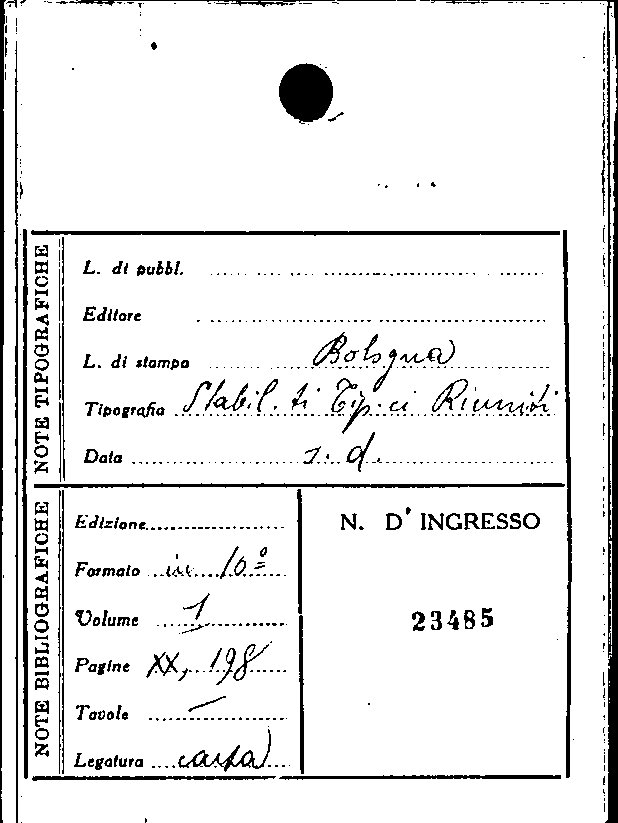 NOTE TIPOGRAFICHE
L. di pubbl.
Editore
L. di stampa Bologna
Tipografia Stabil.ti Tip.ci Riuniti
Data s. d.
NOTE BIBLIOGRAFICHE
Edizione
Formato in 16º
Volume 1
Pagine XX, 198
Tavole —
Legatura carta
N. D' INGRESSO
23485